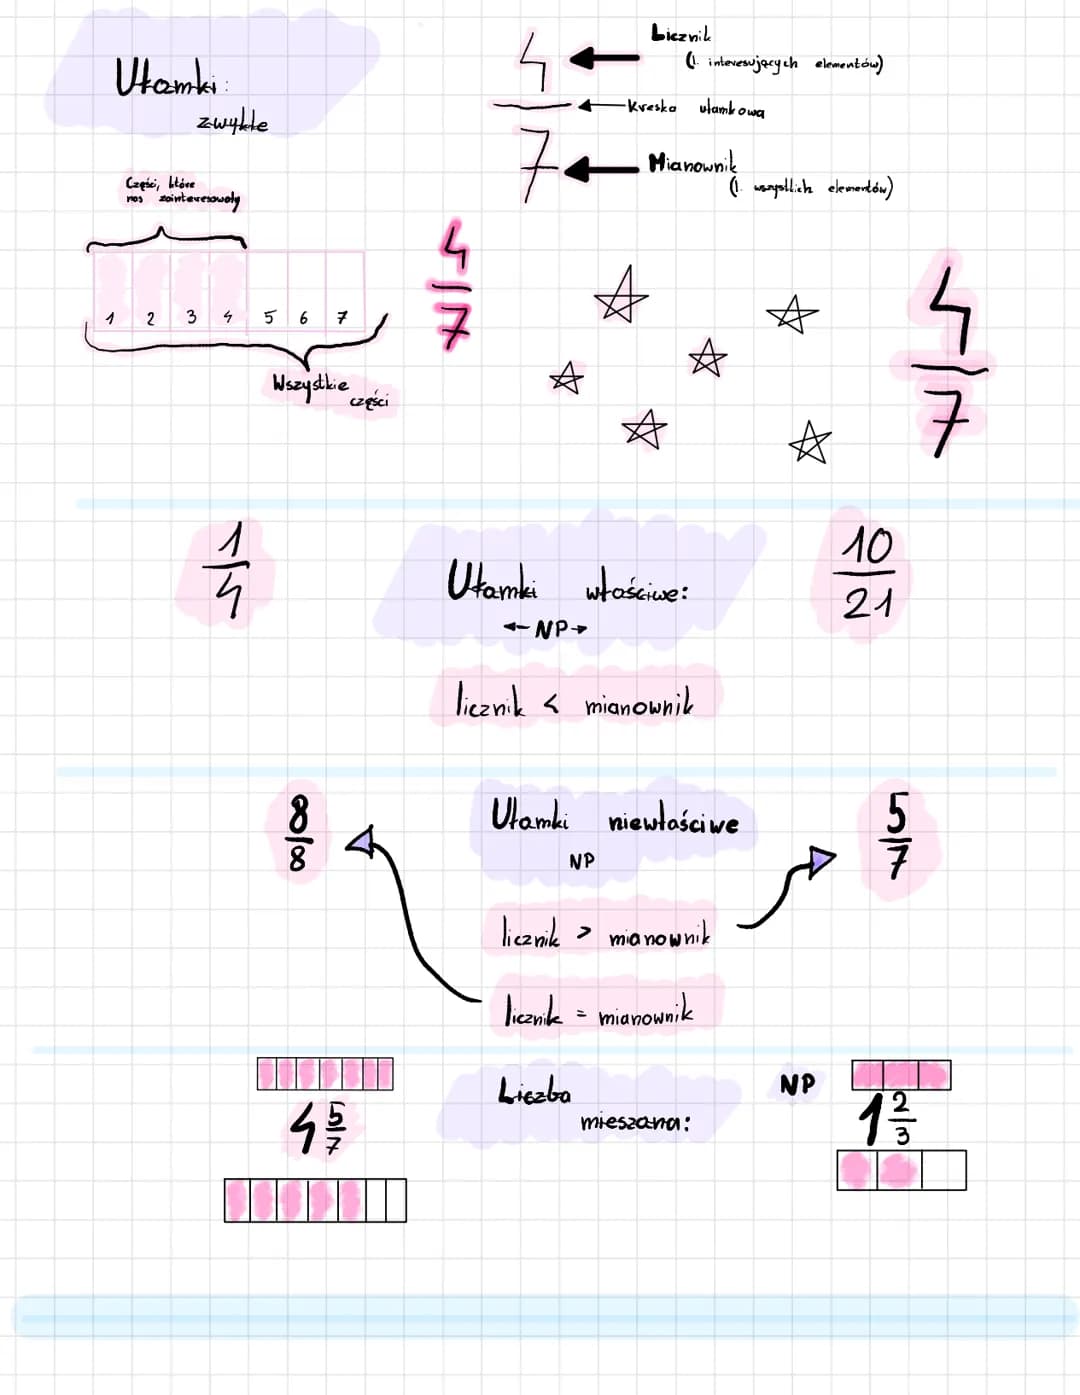 Ułamki:
zwykłe
4
7
Licznik
(l. interesujących elementów)
Kreska ułamkowa
Mianownik
(l. wszystkich elementów)
Części, które
nas zainteresowały
1 2 3 4 5 6 7
Wszystkie
części
4
7
4
7
1
4
Ułamki właściwe:
NP
10
21
licznik < mianownik
8
8
Ułamki niewłaściwe
NP
5
7
licznik > mianownik
licznik = mianownik
Liczba
mieszana:
NP
4 5/7
1 2/3